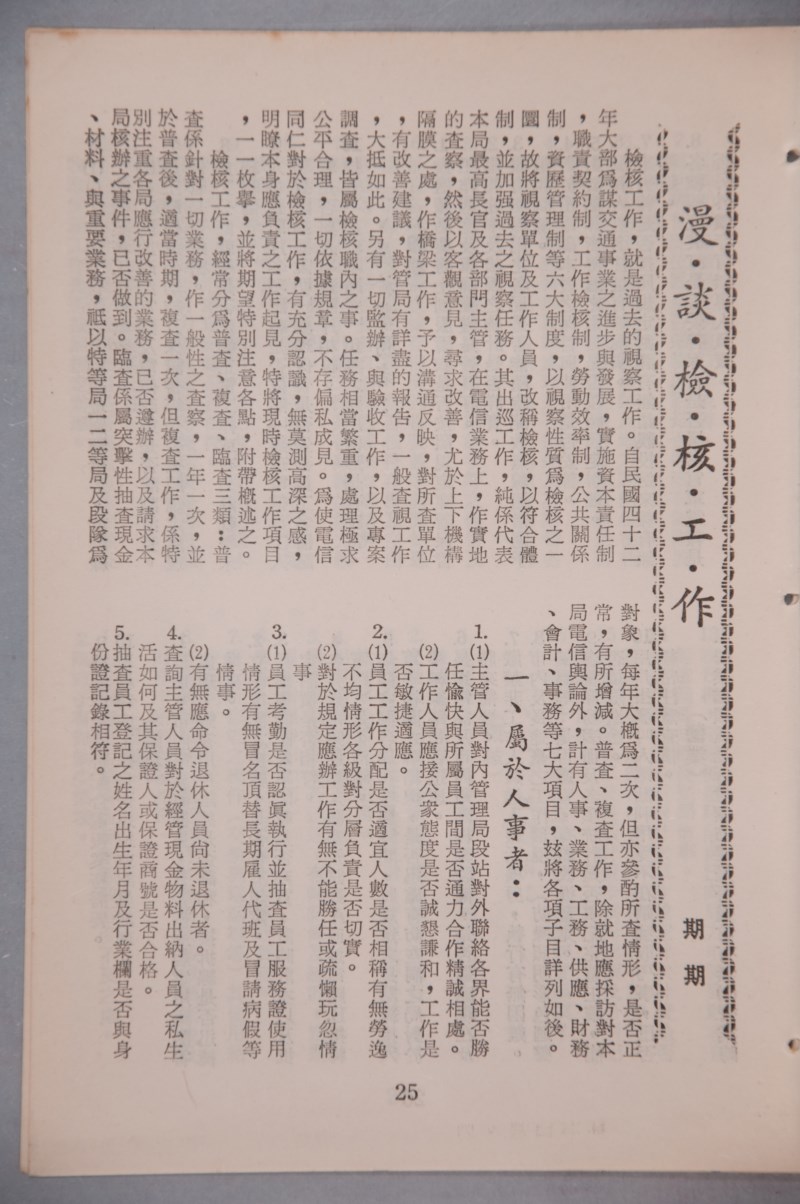 漫・談・檢・核・工・作
期期
檢核工作，就是過去的視察工作。自民國四十二
年大部爲謀交通事業之進步與發展，實施資本責任制
，職責契約制，工作檢核制，勞動效率制，公共關係
制，資歷管理制等六大制度，以視察性質爲檢核之一
圜，故將視察單位及工作人員，改稱檢核，以符合體
制，並加强過去之視察任務。其出巡工作，純係代表
本局最高長官及各部門主管，在電信業務上，作實地
的查察，然後以客觀意見，尋求改善，尤於上下機構
隔膜之處，作橋梁工作，予以溝通反映，對所查單位
，有改善建議，對管局有詳盡的報告，一般查視工作
，大抵如此。另有一切監辦、與驗收工作，以及專案
調查，皆屬檢核職內之事。任務相當繁重，處理極求
公平合理，一切依據規章，不存偏私成見。爲使電信
同仁對於檢核工作，有充分認識，無莫測高深之感，
明瞭本身應負責之工作起見，特將現時檢核工作項目
，一一枚擧，並將期望特別注意各點，附帶概述之。
檢核工作，經常分爲普查、複查、臨查三類：普
查係針對一切業務，作一般性之查察，一年一次，並
於普查後，適當時期，複查一次，但複查工作，係特
別注重各局應行改善的業務，已否遵辦，以及請求本
局核辦之事件，已否做到。臨查係屬突擊性抽查現金
、材料、與重要業務，祇以特等局一二等局及段隊爲
對象，每年大概爲二次，但亦參酌所查情形，是否正
常，有所增減。普查、複查工作，除就地應採訪對本
局電信輿論外，計有人事、業務、工務、供應、財務
、會計、事務等七大項目，玆將各項子目詳列如後。
一、屬於人事者：
1.⑴主管人員對內管理局段站對外聯絡各界能否勝
任愉快與所屬員工間是否通力合作精誠相處。
⑵工作人員應接公衆態度是否誠懇謙和，工作是
否敏捷適應。
2.⑴員工工作分配是否適宜人數是否相稱有無勞逸
不均情形各級對分層負責是否切實。
⑵對於規定應辦工作有無不能勝任或疏懶玩忽情
事
3.⑴員工考勤是否認眞執行並抽查員工服務證使用
情形有無冒名頂替長期雇人代班及冒請病假等
情事。
⑵有無應命令退休人員尙未退休者。
4.查詢主管人員對於經管現金物料出納人員之私生
活如何及其保證人或保證商號是否合格。
5.抽查員工登記之姓名出生年月及行業欄是否與身
份證記錄相符。
25